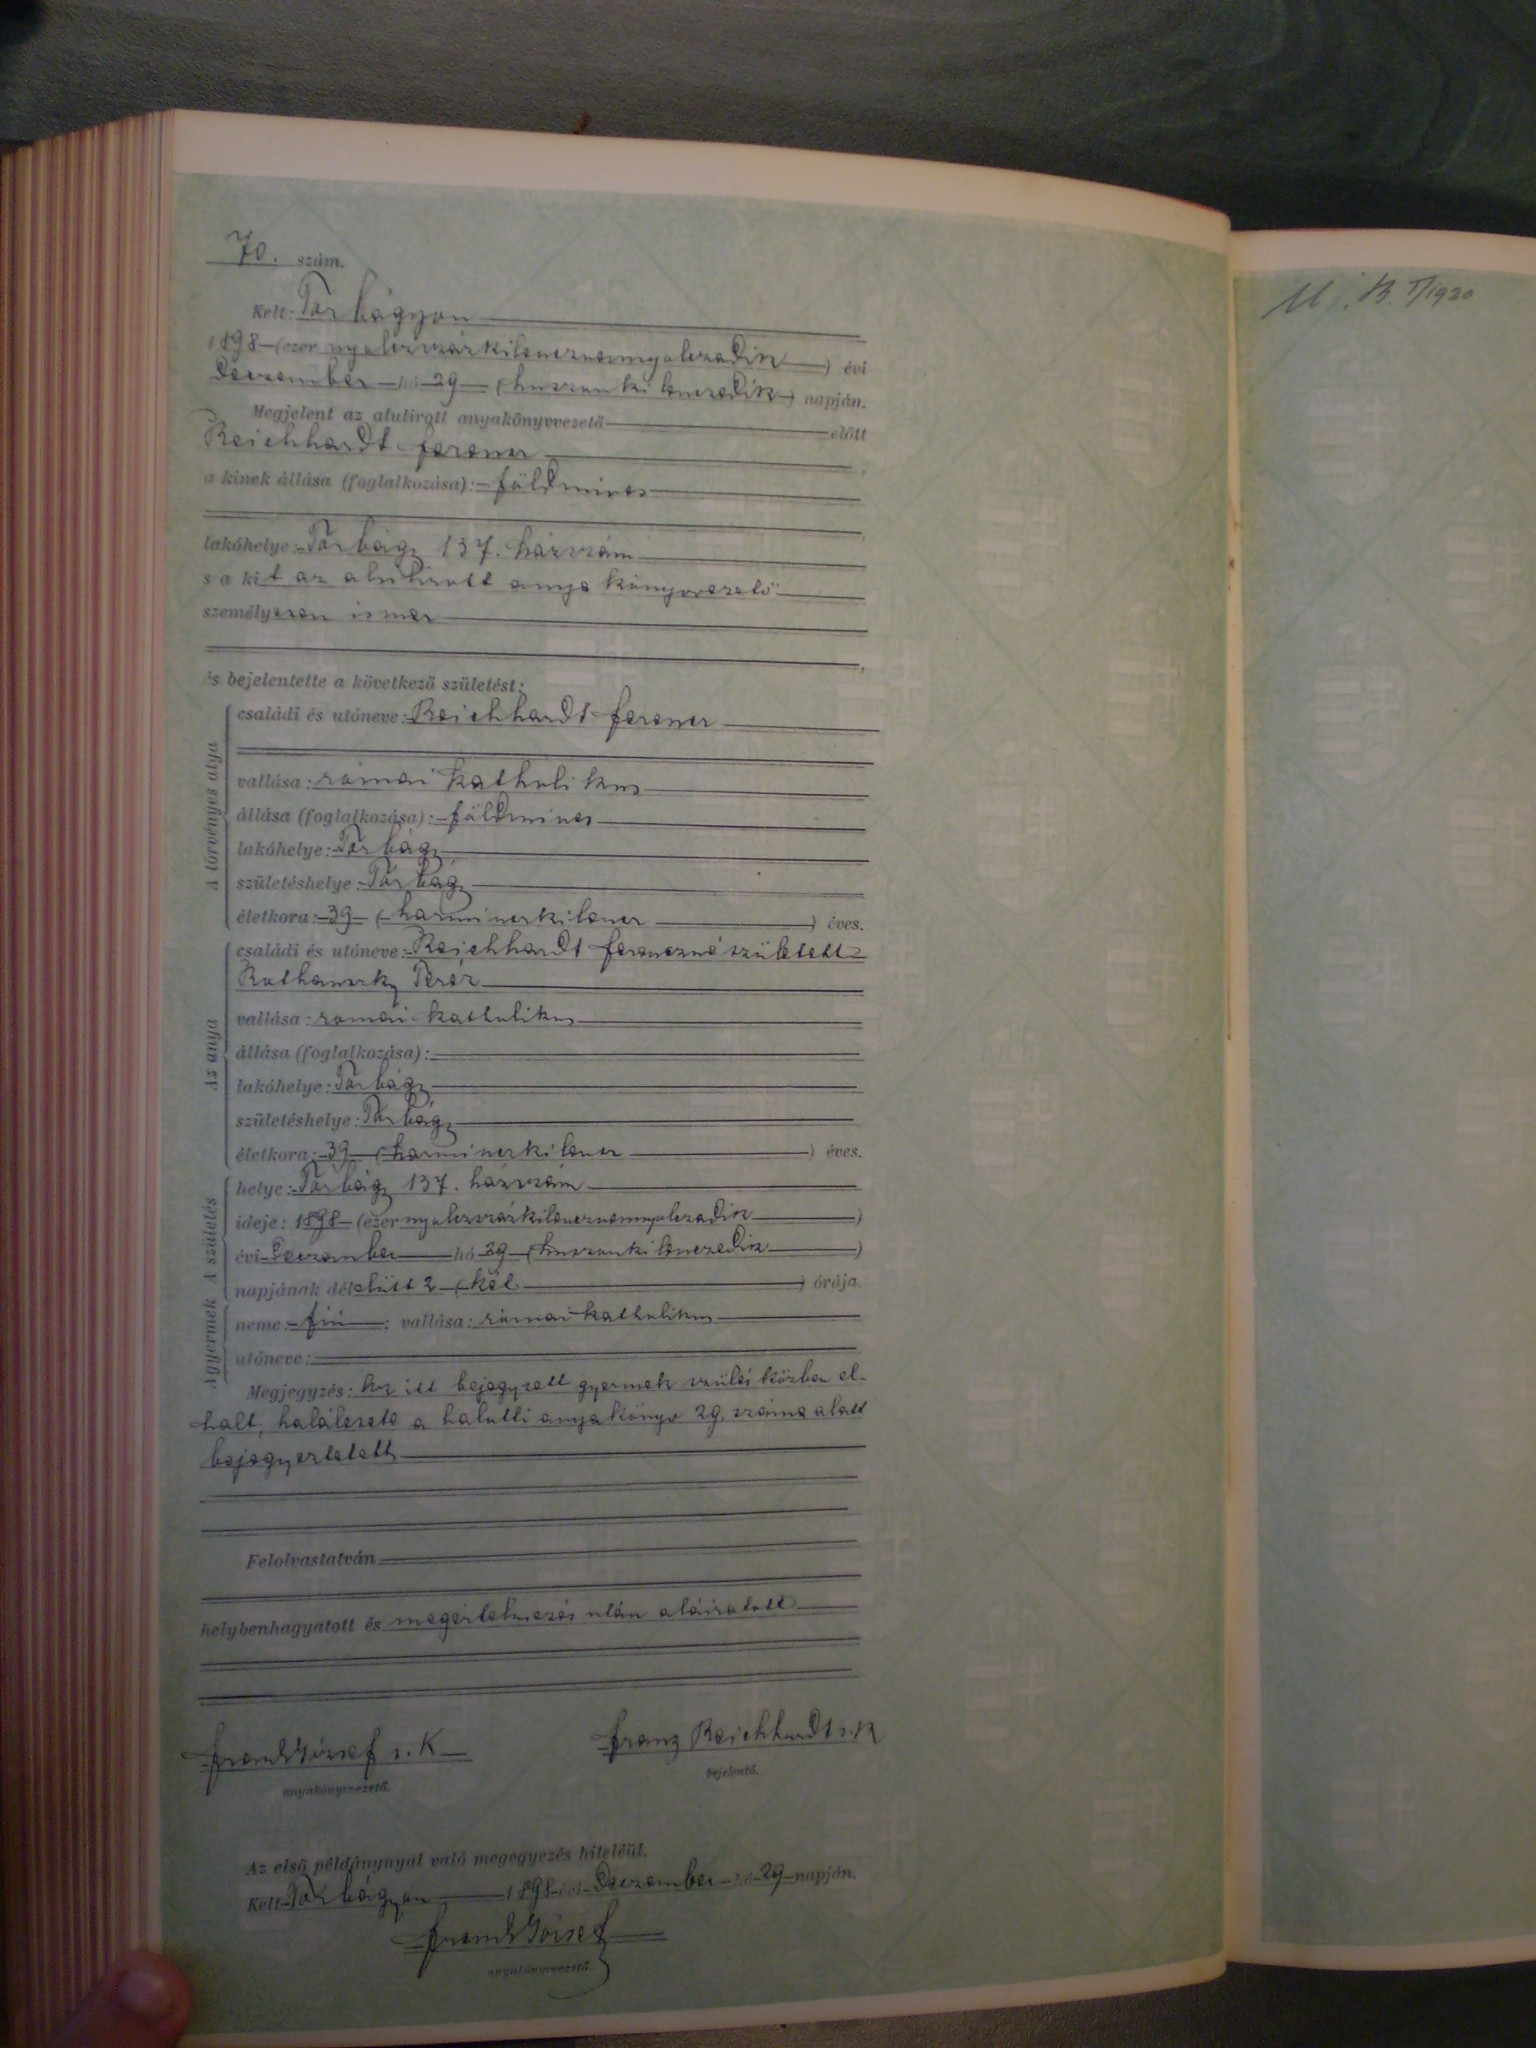 70. szám.
Kelt: Torbágyon
1898 (ezer nyolczszázkilencznvennyolczadik) évi
Deczember hó 29 (huszonkilenczedik) napján.
Megjelent az alulirott anyakönyvvezető előtt
Reichhardt Ferencz
a kinek állása (foglalkozása): földmives
lakóhelye: Torbágy 137. házszám
s a kit az alulirott anyakönyvvezető
személyesen ismer
és bejelentette a következő születést:
A törvényes atya
családi és utóneve: Reichhardt Ferencz
vallása: római katholikus
állása (foglalkozása): földmives
lakóhelye: Torbágy
születéshelye: Torbágy
életkora: 39 (harminczkilencz) éves.
Az anya
családi és utóneve: Reichhardt Ferenczné született
Teréz
vallása: romai katholikus
állása (foglalkozása):
lakóhelye: Torbágy
születéshelye: Torbágy
életkora: 39 (harminczkilencz) éves.
A születés
helye: Torbágy 137. házszám
ideje: 1898 (ezer nyolczszázkilencznvennyolczadik)
évi Deczember hó 29 (huszonkilenczedik)
napjának délelőtt 2 (két) órája.
A gyermek
neme: fiú; vallása: római katholikus
utóneve:
Megjegyzés: Az itt bejegyzett gyermek szülés közben el-
halt, halálesete a halotti anyakönyv 29. száma alatt
bejegyeztetett
Felolvastatván
helybenhagyatott és megértelmezés után aláiratott
József s. k
Franz Reichhardt s. k
anyakönyvvezető.
bejelentő.
Az első példánynyal való megegyezés hiteléül.
Kelt Torbágyon 1898 évi Deczember hó 29 napján.
József
anyakönyvvezető
M. B. 1/1920